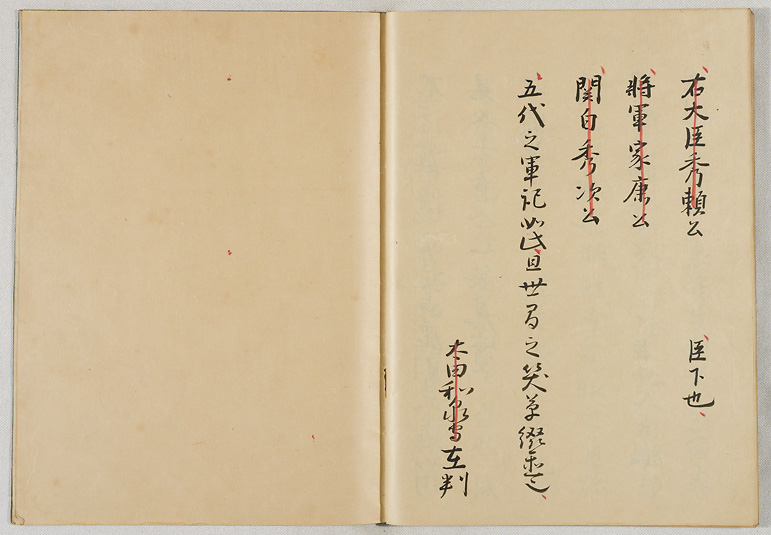 右大臣秀頼公 臣下也
將軍家康公
関白秀次公
五代之軍記如此且世間之笑草綴置之
太田和泉守 在判